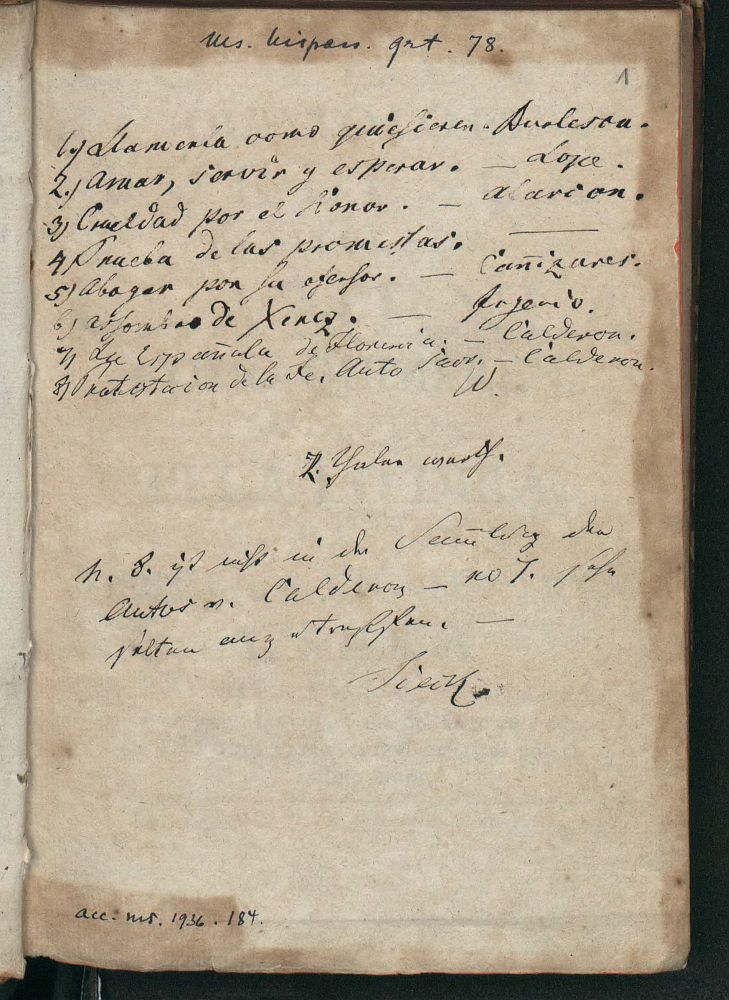 Ms. hispan. qrt. 78.
1
1.) Llamenla como quisieren. Burlesca.
2.) Amar, servir y esperar. — Lope.
3) Crueldad por el Honor. — Alarcon.
4) Prueba de las promessas. ———
5) Abogar por su ofensor. — Cañizares.
6) assombro de Xerez. — Ingenio.
7) La Española de Florencia. — Calderon.
8) Protestacion de la Fe. Auto Sacr. — Calderon.
2. Thaler werth.
N. 8. ist nicht in der Sammlung der
Autos v. Calderon — no 7. sehr
selten anzutreffen. —
Tieck.
acc. ms. 1936. 184.